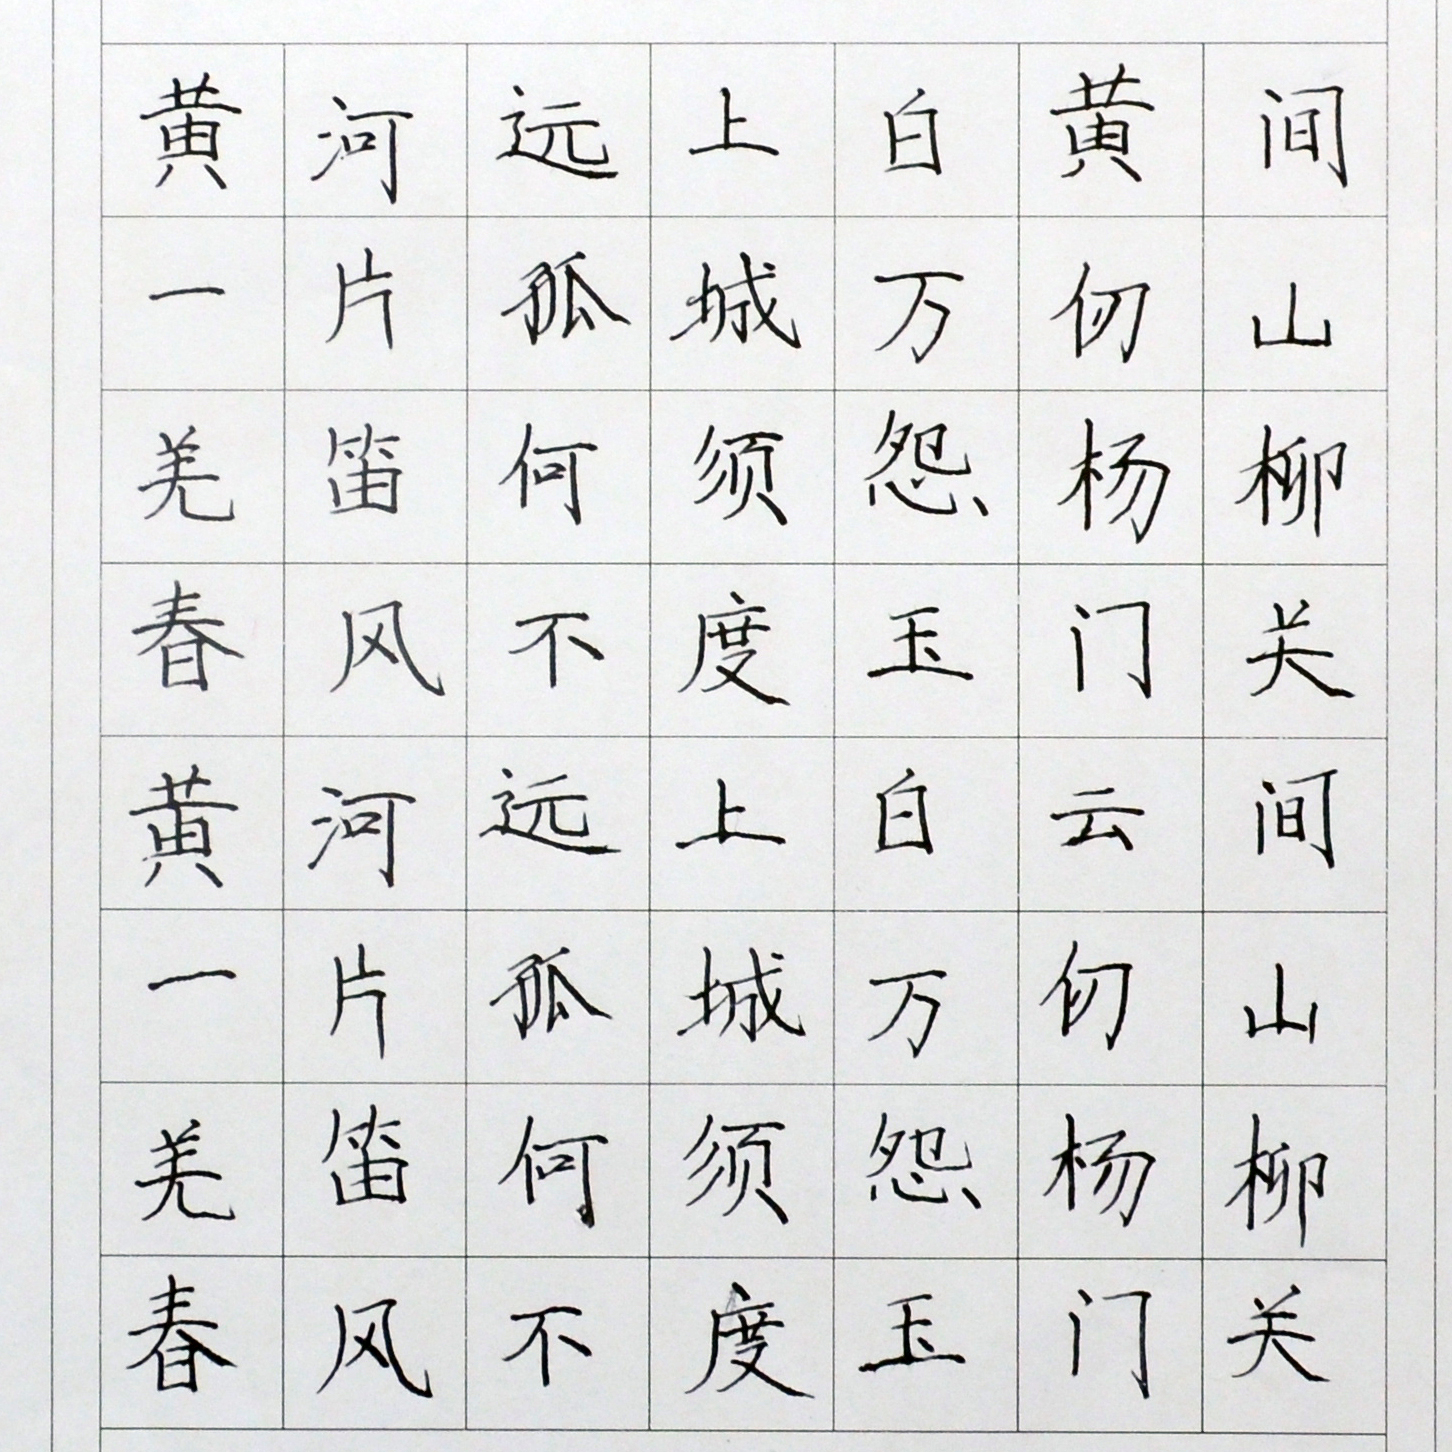 黄河远上白黄间
一片孤城万仞山
羌笛何须怨杨柳
春风不度玉门关
黄河远上白云间
一片孤城万仞山
羌笛何须怨杨柳
春风不度玉门关